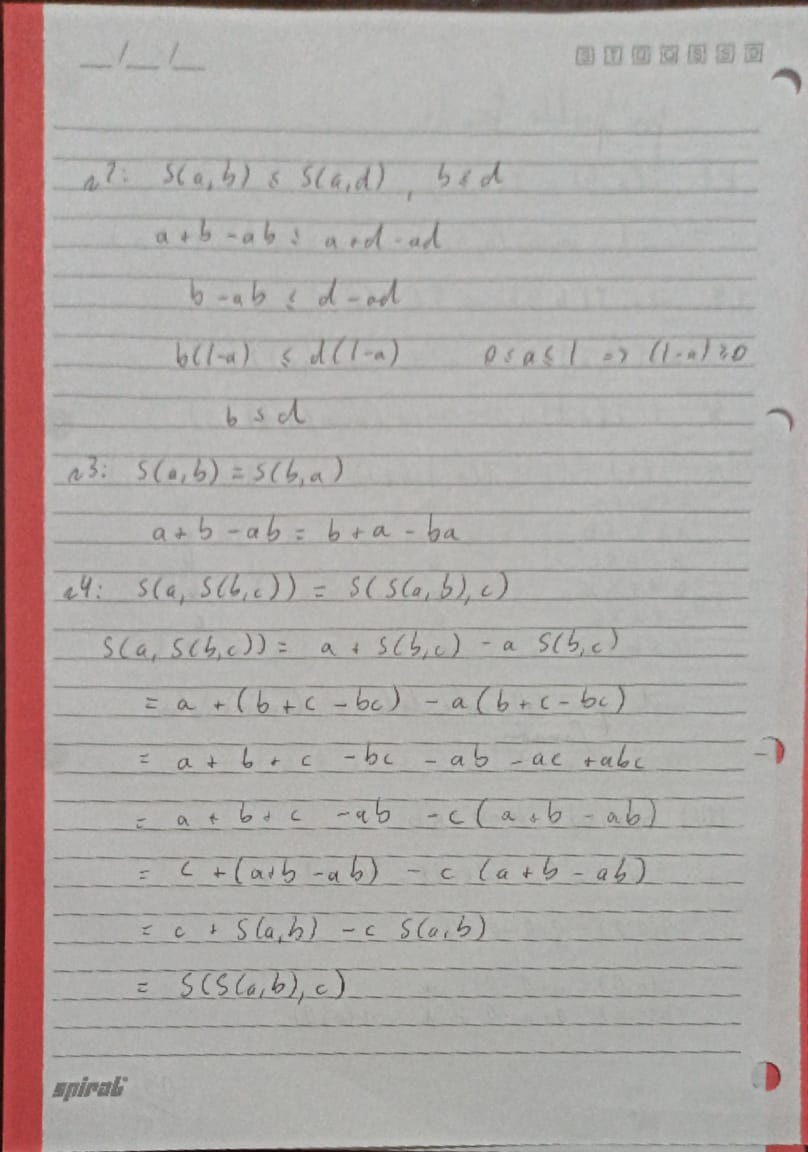 __/__/__
S T Q Q S S D
s2: S(a,b) ≤ S(a,d), b ≤ d
a + b - ab ≤ a + d - ad
b - ab ≤ d - ad
b(1-a) ≤ d(1-a) 0 ≤ a ≤ 1 => (1-a) ≥ 0
b ≤ d
s3: S(a,b) = S(b,a)
a + b - ab = b + a - ba
s4: S(a, S(b,c)) = S(S(a,b),c)
S(a, S(b,c)) = a + S(b,c) - a S(b,c)
= a + (b + c - bc) - a(b + c - bc)
= a + b + c - bc - ab - ac + abc
= a + b + c - ab - c(a + b - ab)
= c + (a+b - ab) - c (a + b - ab)
= c + S(a,b) - c S(a,b)
= S(S(a,b),c)
spiral